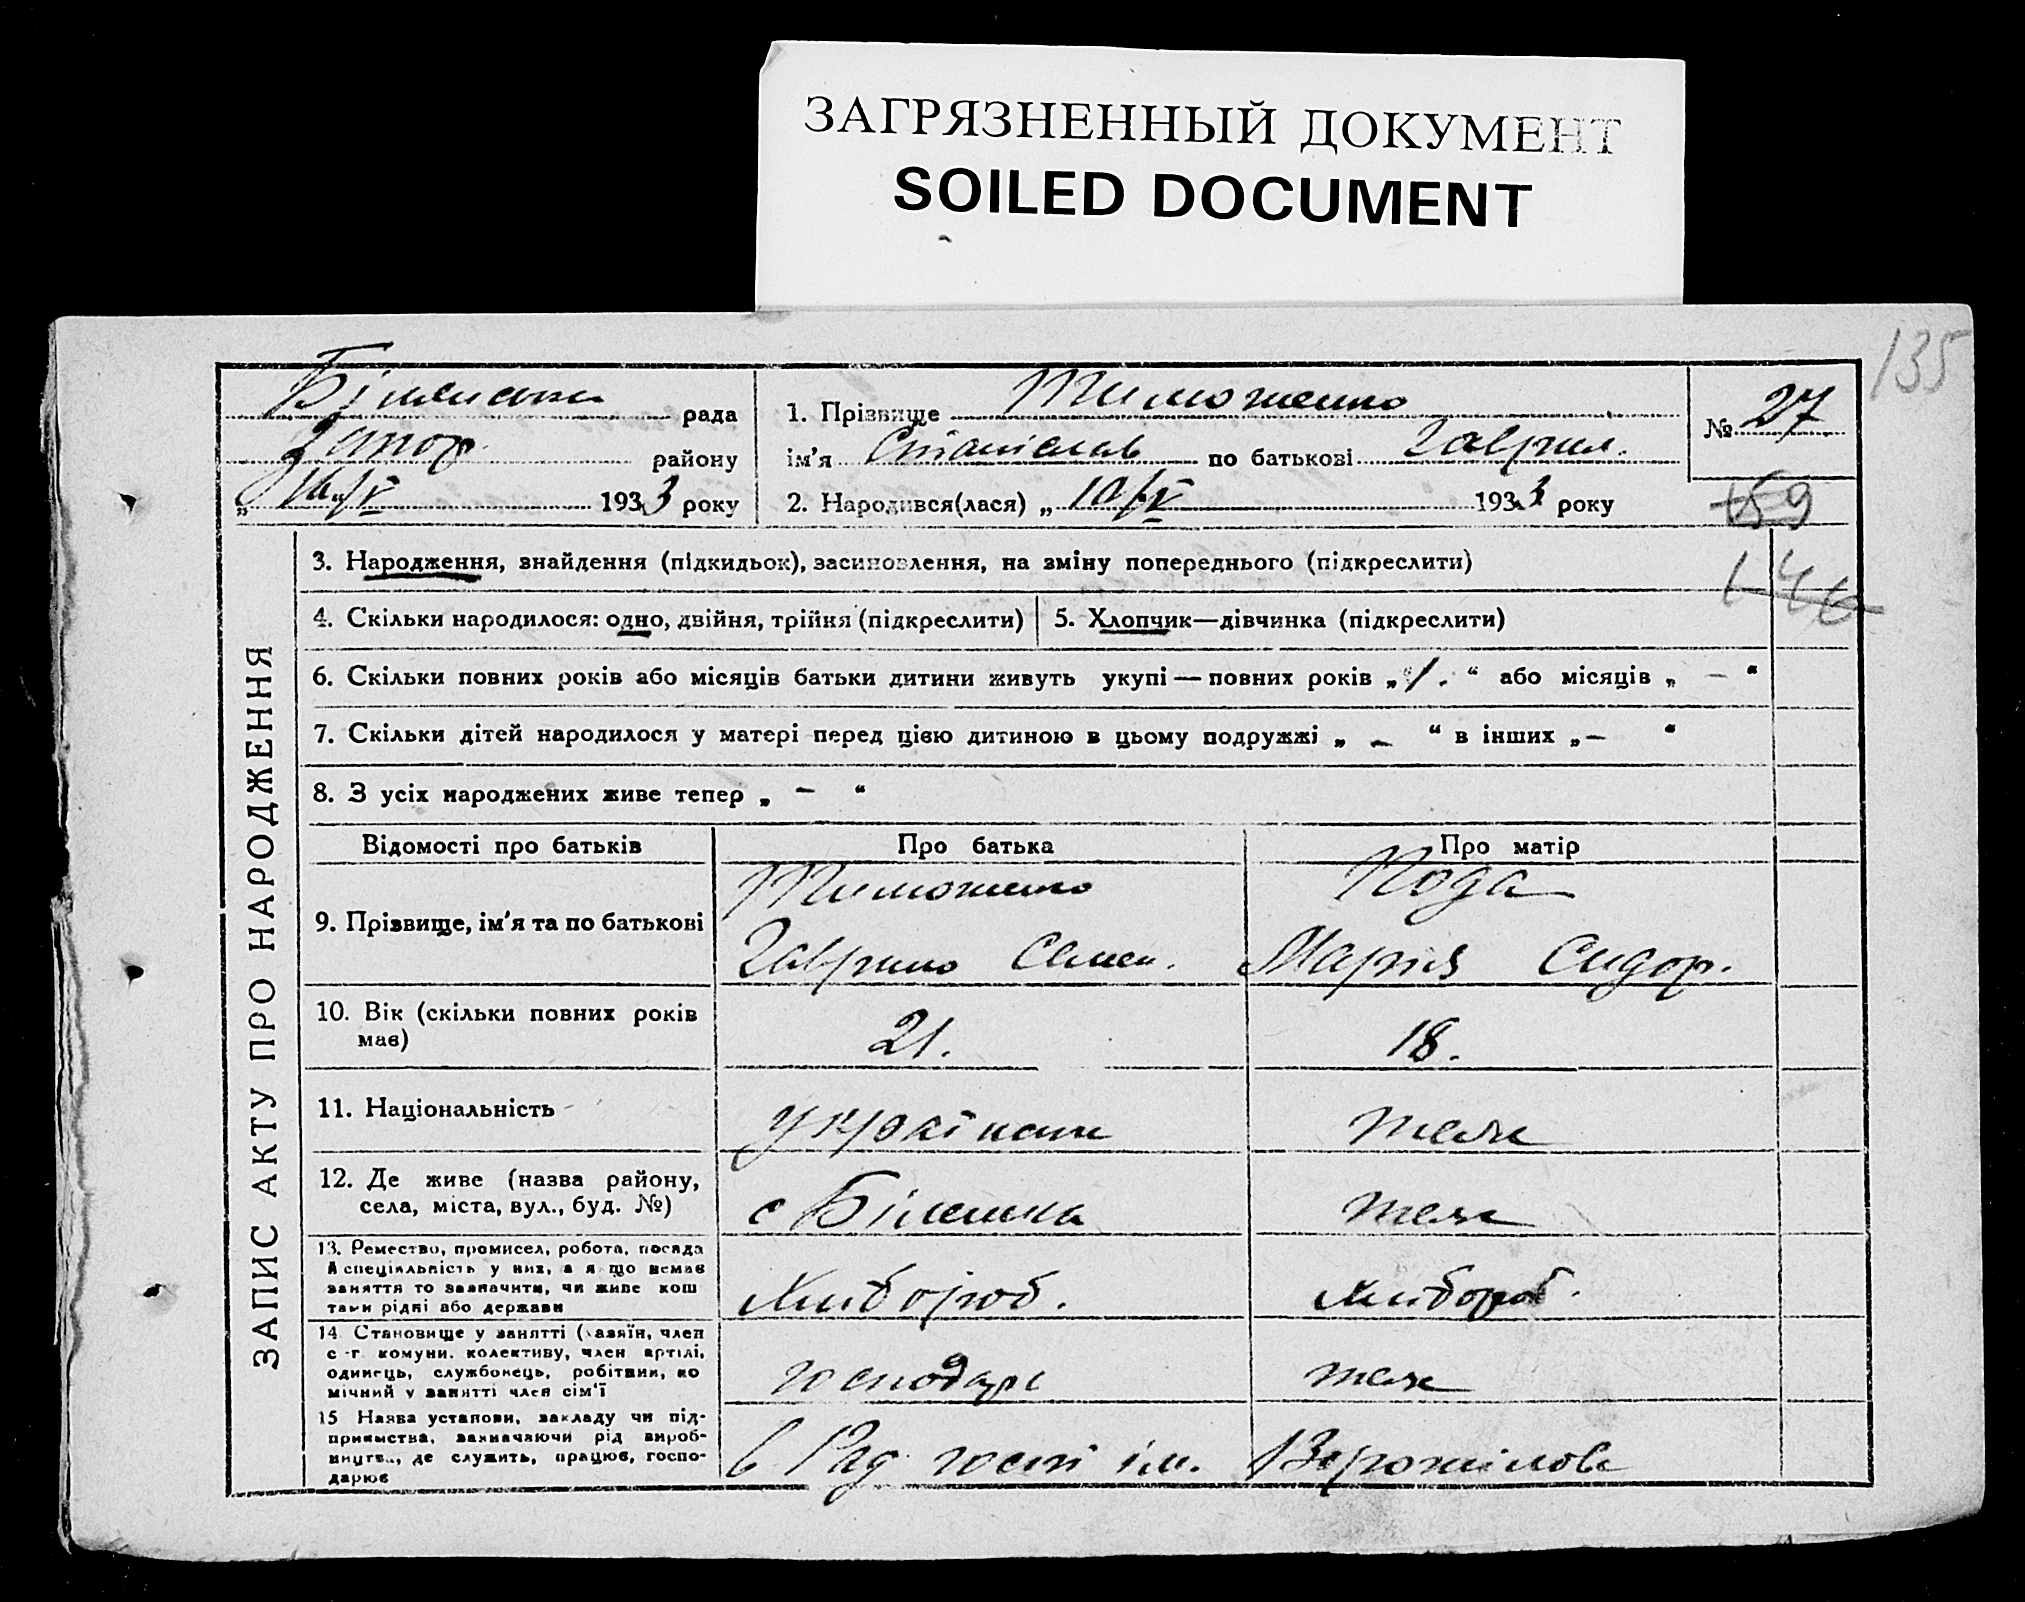 ЗАГРЯЗНЕННЫЙ ДОКУМЕНТ
SOILED DOCUMENT
135
Біленська рада
Запор. району
„16/V 1933 року
1. Прізвище Тимошенко
ім'я Станіслав по батькові Гаврил.
2. Народився(лася) „10/V 1933 року
№ 27
159
146
ЗАПИС АКТУ ПРО НАРОДЖЕННЯ
3. Народження, знайдення (підкидьок), засиновлення, на зміну попереднього (підкреслити)
4. Скільки народилося: одно, двійня, трійня (підкреслити)
5. Хлопчик—дівчинка (підкреслити)
6. Скільки повних років або місяців батьки дитини живуть укупі — повних років „1." або місяців „ — "
7. Скільки дітей народилося у матері перед цією дитиною в цьому подружжі „ — " в інших „ — "
8. З усіх народжених живе тепер „ — "
Відомості про батьків Про батька Про матір
9. Прізвище, ім'я та по батькові
Тимошенко Пода
Гаврило Семен. Мария Сидор.
10. Вік (скільки повних років
має)
21. 18.
11. Національність
Українец теж
12. Де живе (назва району,
села, міста, вул., буд. №)
с Біленька теж
13. Ремество, промисел, робота, посада
й спеціяльність у них, а якщо немає
заняття то зазначити, чи живе кош
тами рідні або держави
хлібороб. хлібороб.
14 Становище у занятті (хазяїн, член
с -г. комуни, колективу, член артілі,
одинець, службонець, робітник, по
мічний у занятті член сім'ї
господарь теж
15 Назва установи, закладу чи під-
приємства, зазначаючи рід вироб-
ництва, де служить, працює, госпо-
дарює
в Рад. госпі ім. Ворошілова